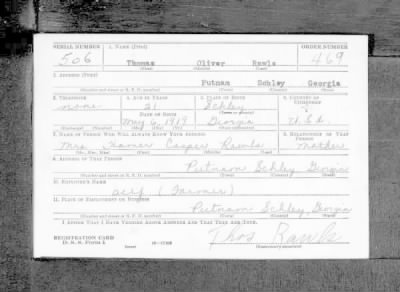 SERIAL NUMBER 1. NAME (Print) ORDER NUMBER
506 Thomas Oliver Rawls 469
(First) (Middle) (Last)
2. ADDRESS (Print)
Putnam Schley Georgia
(Number and street or R. F. D. number) (Town) (County) (State)
3. TELEPHONE 4. AGE IN YEARS 5. PLACE OF BIRTH 6. COUNTRY OF CITIZENSHIP
none 21 Schley
DATE OF BIRTH (Town or county)
May 6, 1919 Georgia U.S.A.
(Exchange) (Number) (Mo.) (Day) (Yr.) (State or country)
7. NAME OF PERSON WHO WILL ALWAYS KNOW YOUR ADDRESS 8. RELATIONSHIP OF THAT PERSON
Mrs. Rawls Mother
(Mr., Mrs., Miss) (First) (Middle) (Last)
9. ADDRESS OF THAT PERSON
Putnam Schley Georgia
(Number and street or R. F. D. number) (Town) (County) (State)
10. EMPLOYER'S NAME
self (Farmer)
11. PLACE OF EMPLOYMENT OR BUSINESS
Putnam Schley Georgia
(Number and street or R. F. D. number) (Town) (County) (State)
I AFFIRM THAT I HAVE VERIFIED ABOVE ANSWERS AND THAT THEY ARE TRUE.
REGISTRATION CARD
D. S. S. Form 1 Thos Rawls
(Registrant's signature)